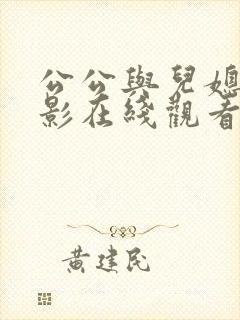 公公與兒媳
影在綫觀看
黃建民